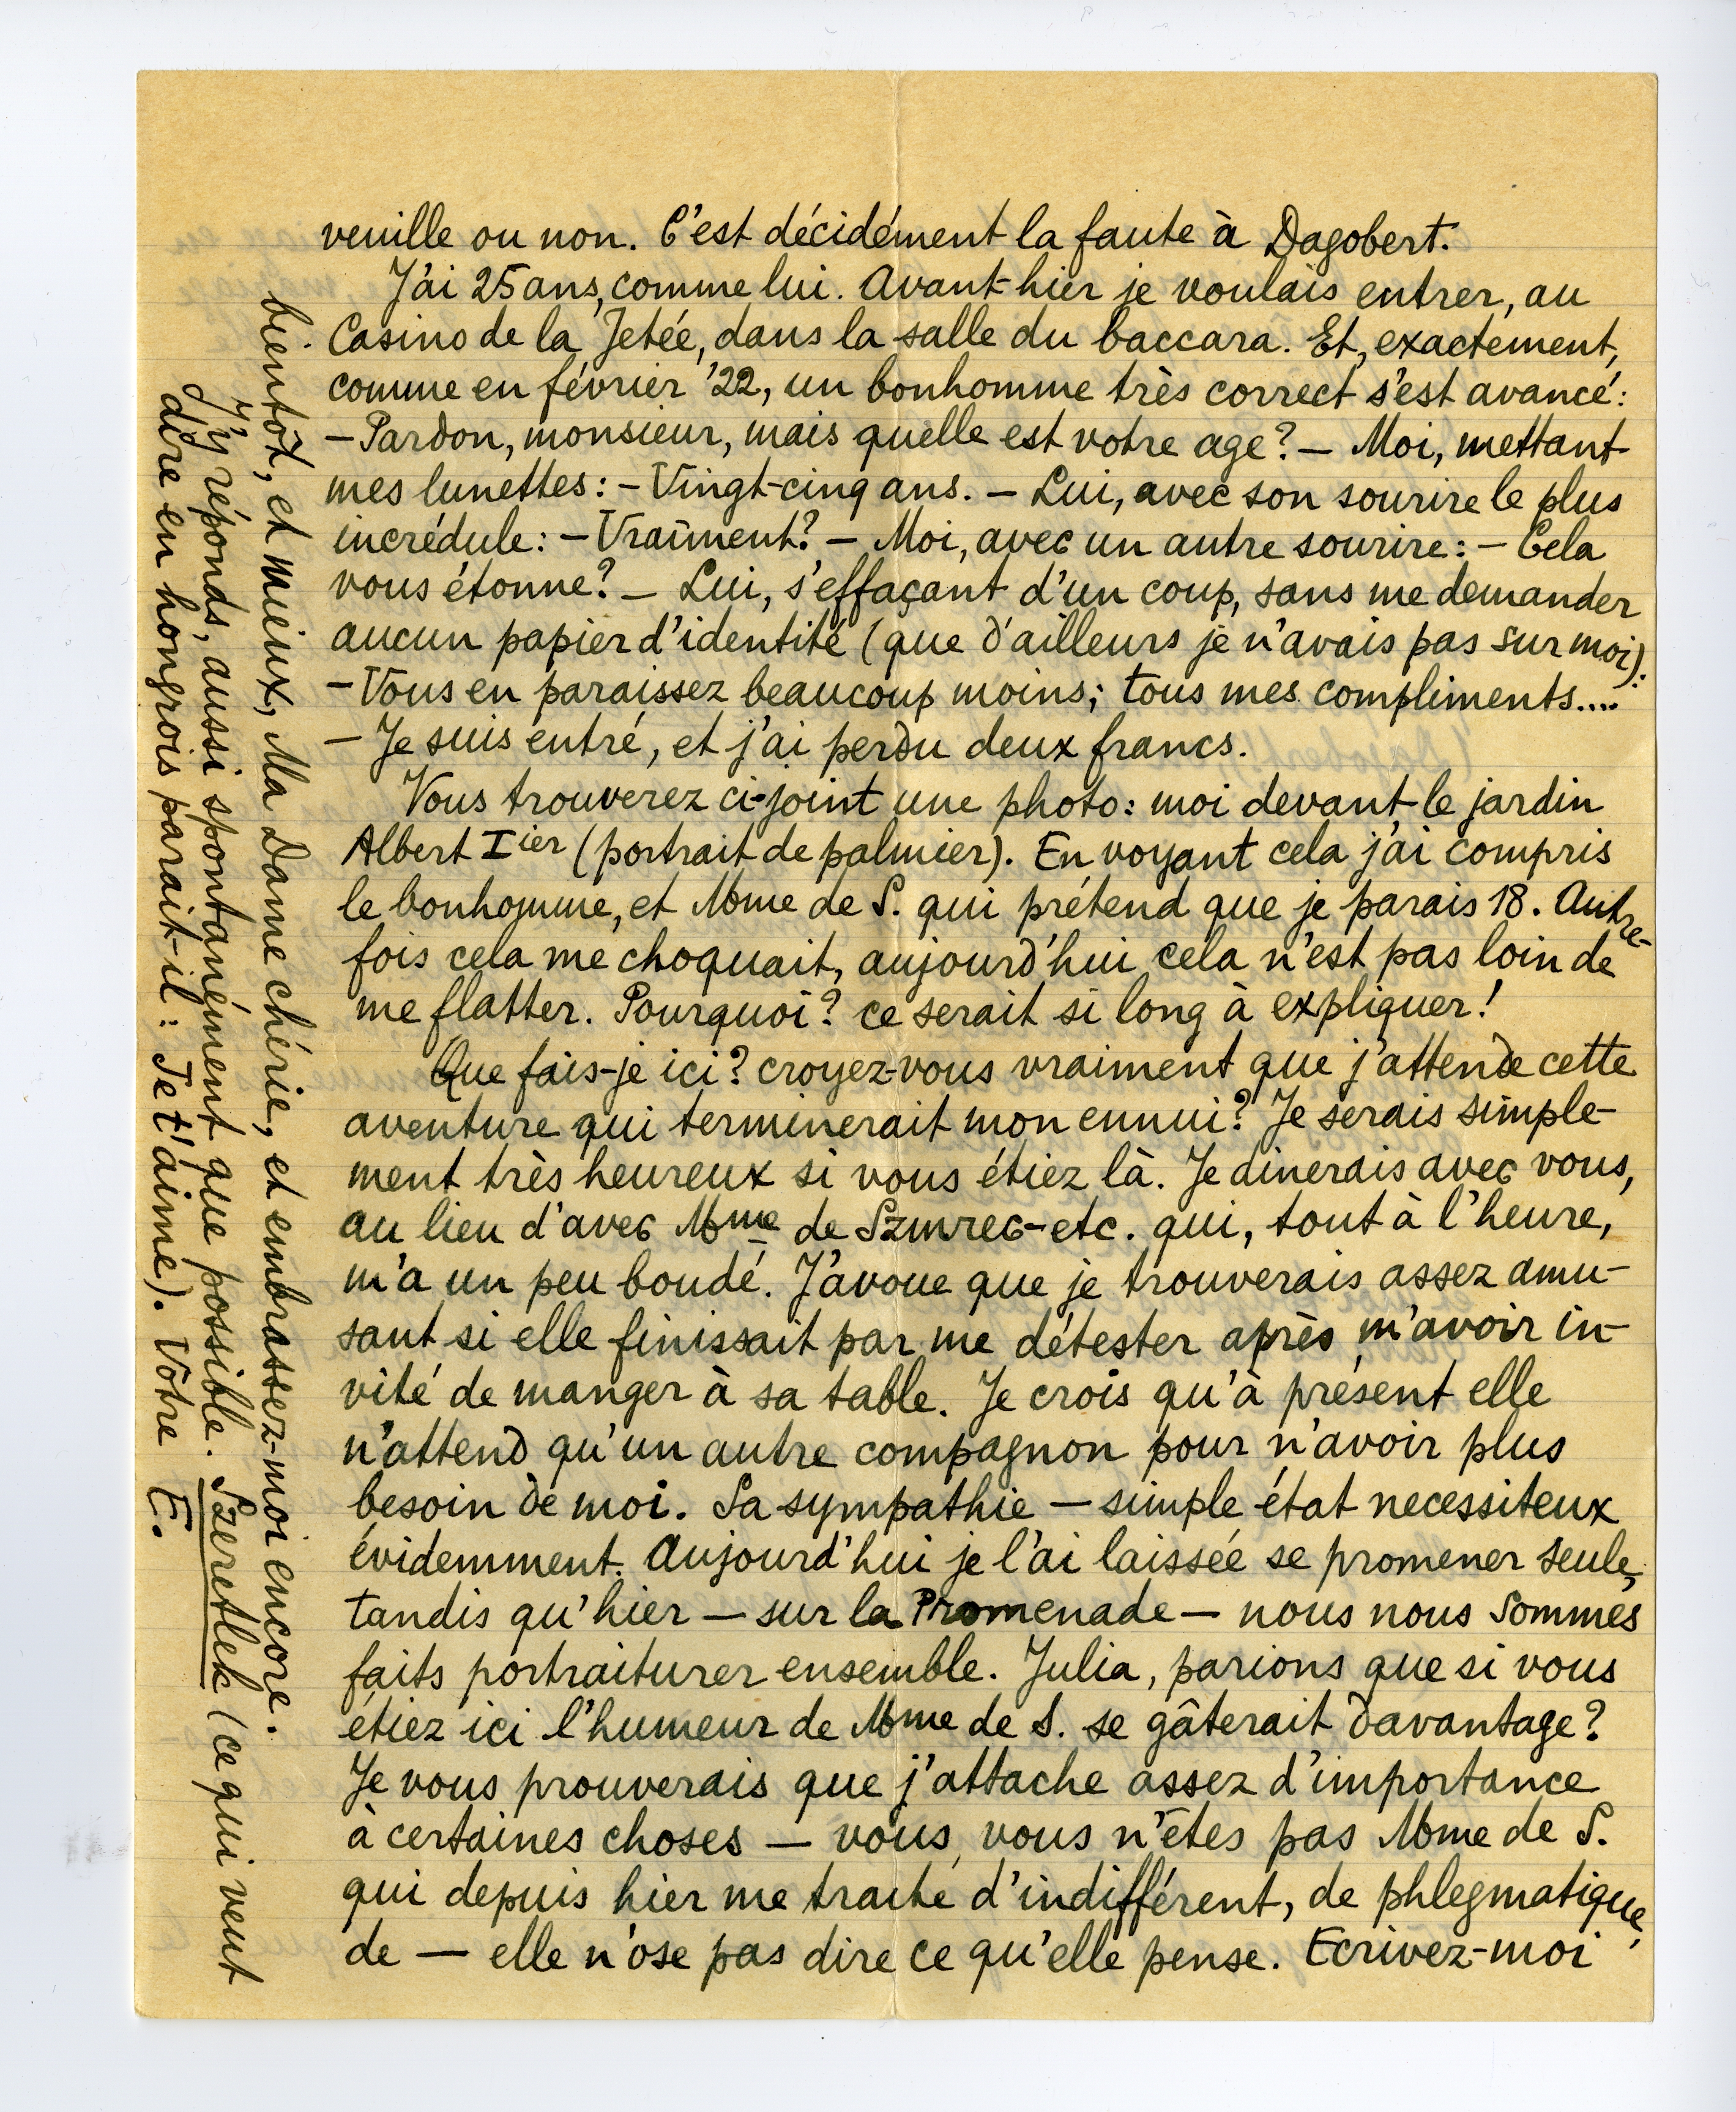 veuille ou non. C'est décidément la faute à Dagobert.
J'ai 25 ans, comme lui. Avant-hier je voulais entrer, au
Casino de la Jetée, dans la salle du baccara. Et, exactement,
comme en février '22, un bonhomme très correct s'est avancé:
— Pardon, monsieur, mais quelle est votre age? — Moi, mettant
mes lunettes: — Vingt-cinq ans. — Lui, avec son sourire le plus
incrédule: — Vraiment? — Moi, avec un autre sourire: — Cela
vous étonne? — Lui, s'effaçant d'un coup, sans me demander
aucun papier d'identité (que d'ailleurs je n'avais pas sur moi):
— Vous en paraissez beaucoup moins; tous mes compliments....
— Je suis entré, et j'ai perdu deux francs.
Vous trouverez ci-joint une photo: moi devant le jardin
Albert Iier (portrait de palmier). En voyant cela j'ai compris
le bonhomme, et Mme de S. qui prétend que je parais 18. Autre-
fois cela me choquait, aujourd'hui cela n'est pas loin de
me flatter. Pourquoi? ce serait si long à expliquer!
Que fais-je ici? croyez-vous vraiment que j'attende cette
aventure qui terminerait mon ennui? Je serais simple-
ment très heureux si vous étiez là. Je dinerais avec vous,
au lieu d'avec Mme de Szmrec-etc. qui, tout à l'heure,
m'a un peu boudé. J'avoue que je trouverais assez amu-
sant si elle finissait par me détester après m'avoir in-
vité de manger à sa table. Je crois qu'à présent elle
n'attend qu'un autre compagnon pour n'avoir plus
besoin de moi. Sa sympathie — simple état necessiteux
évidemment. Aujourd'hui je l'ai laissée se promener seule,
tandis qu'hier — sur la Promenade — nous nous sommes
faits portraiturer ensemble. Julia, parions que si vous
étiez ici l'humeur de Mme de S. se gâterait davantage?
Je vous prouverais que j'attache assez d'importance
à certaines choses — vous, vous n'êtes pas Mme de S.
qui depuis hier me traite d'indifférent, de phlegmatique,
de — elle n'ose pas dire ce qu'elle pense. Ecrivez-moi
bientôt, et mieux, Ma Dame chérie, et embrassez-moi encore.
J'y réponds, aussi spontanément que possible. Szeretlek (ce qui veut
dire en hongrois parait-il: Je t'aime). Votre E.